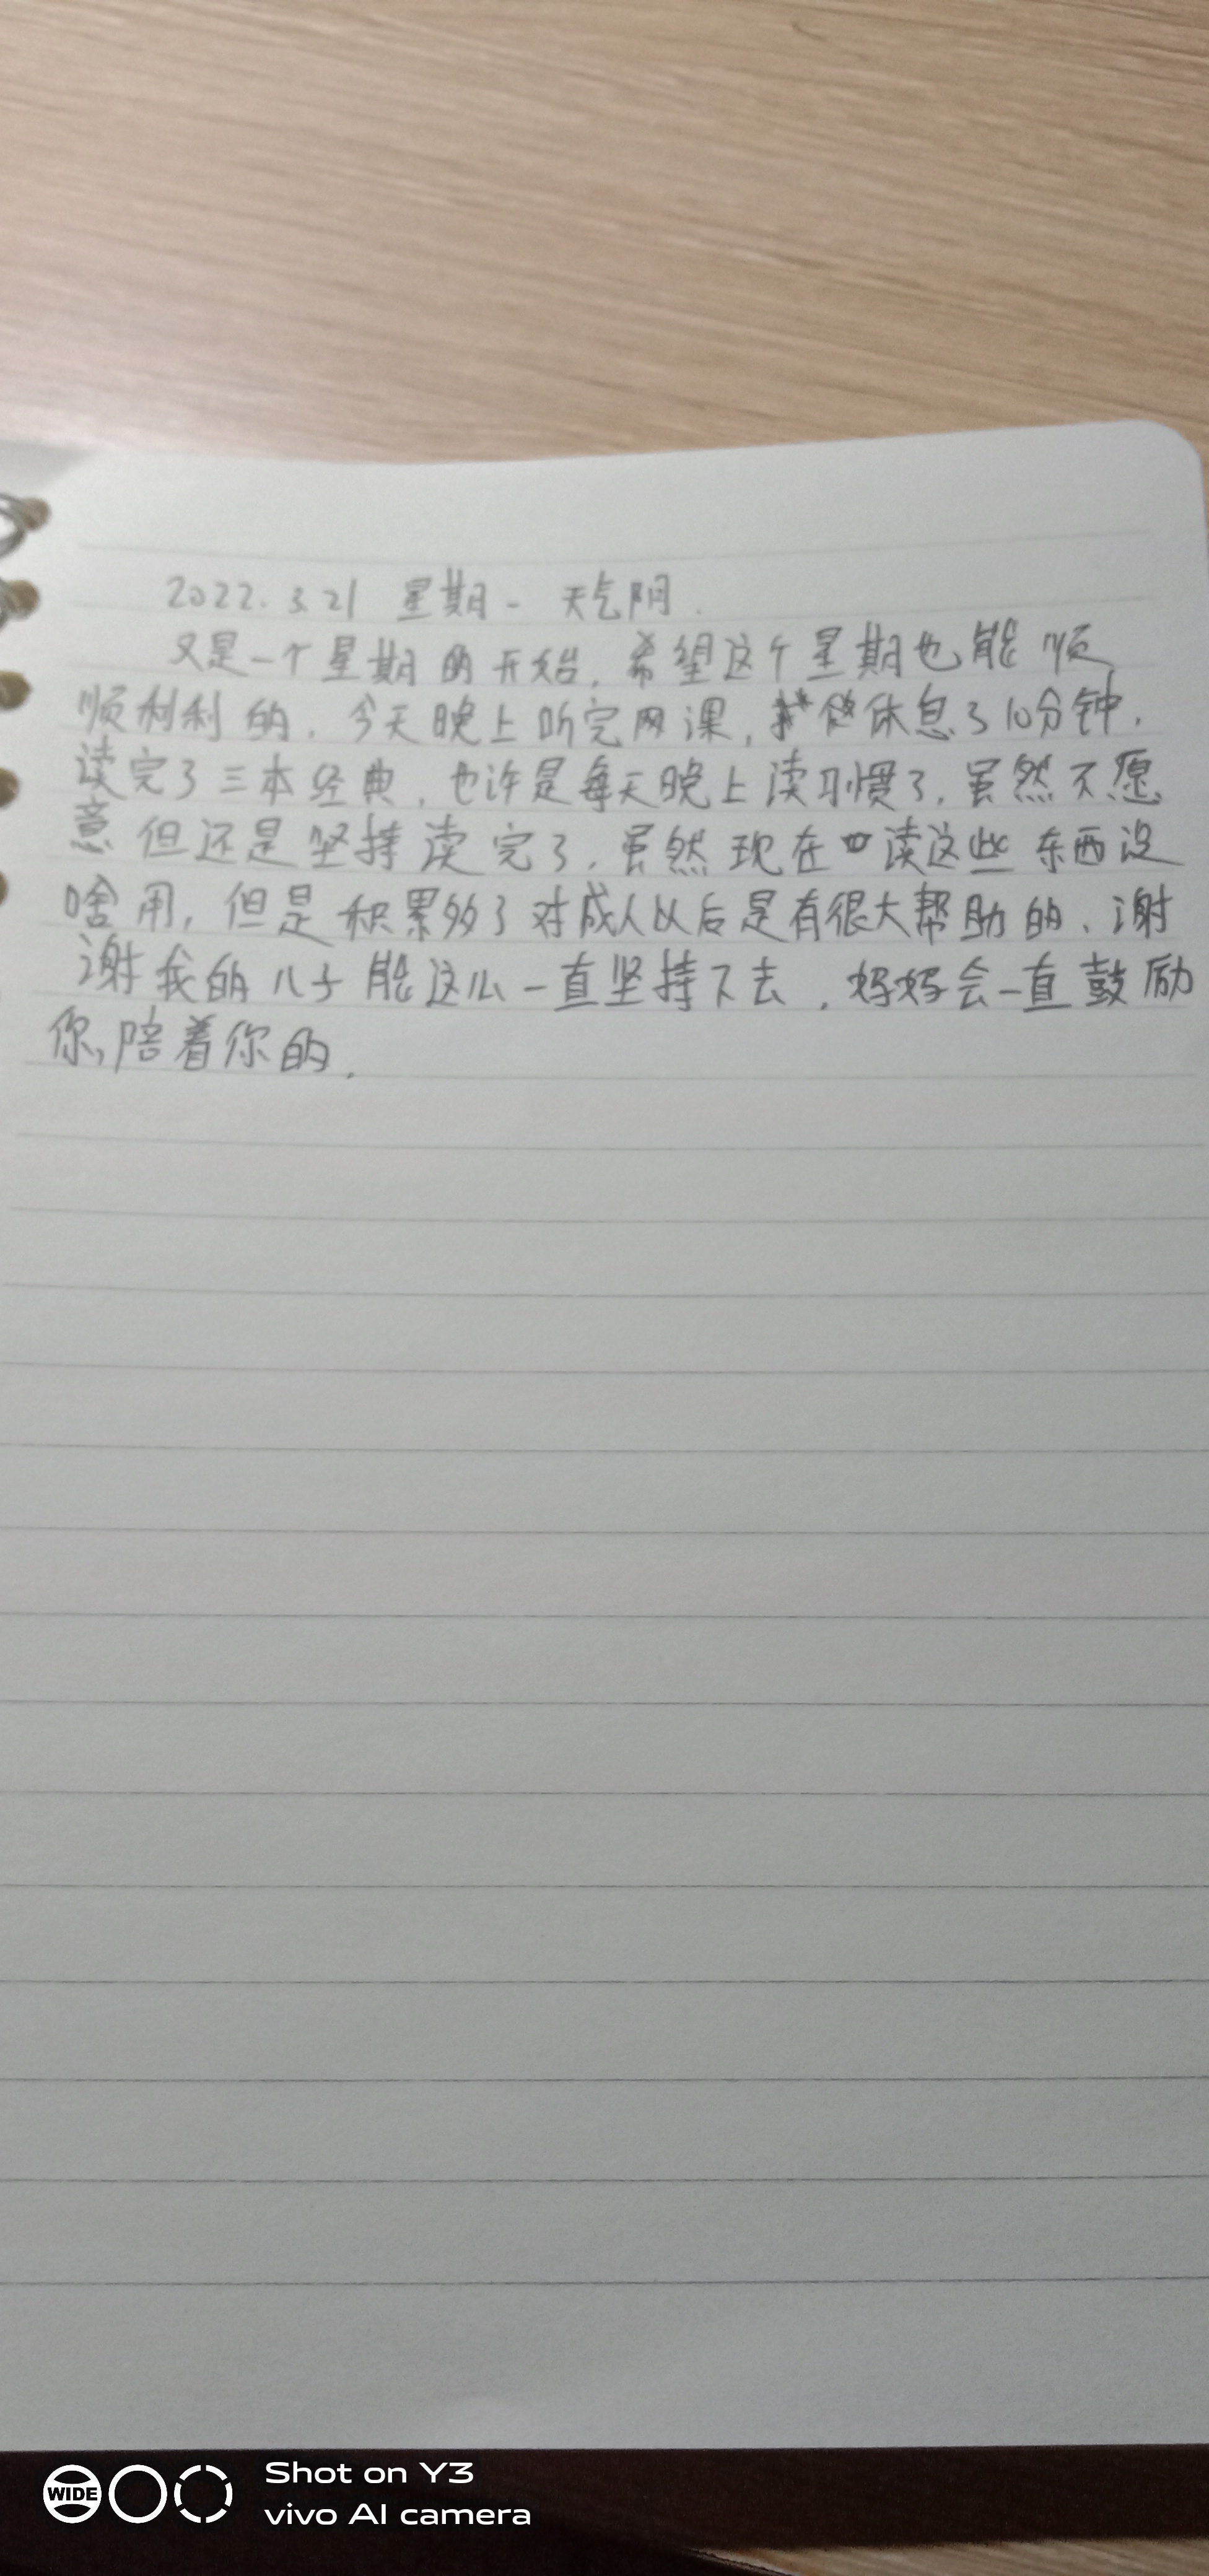 2022.3.21 星期一 天气阴.
又是一个星期的开始,希望这个星期也能顺
顺利利的.今天晚上听完网课,他休息了10分钟.
读完了三本经典.也许是每天晚上读习惯了.虽然不愿
意但还是坚持读完了.虽然现在读这些东西没
啥用,但是积累多了对成人以后是有很大帮助的、谢
谢我的儿子能这么一直坚持下去.妈妈会一直鼓励
你,陪着你的.
WIDE
Shot on Y3
vivo AI camera